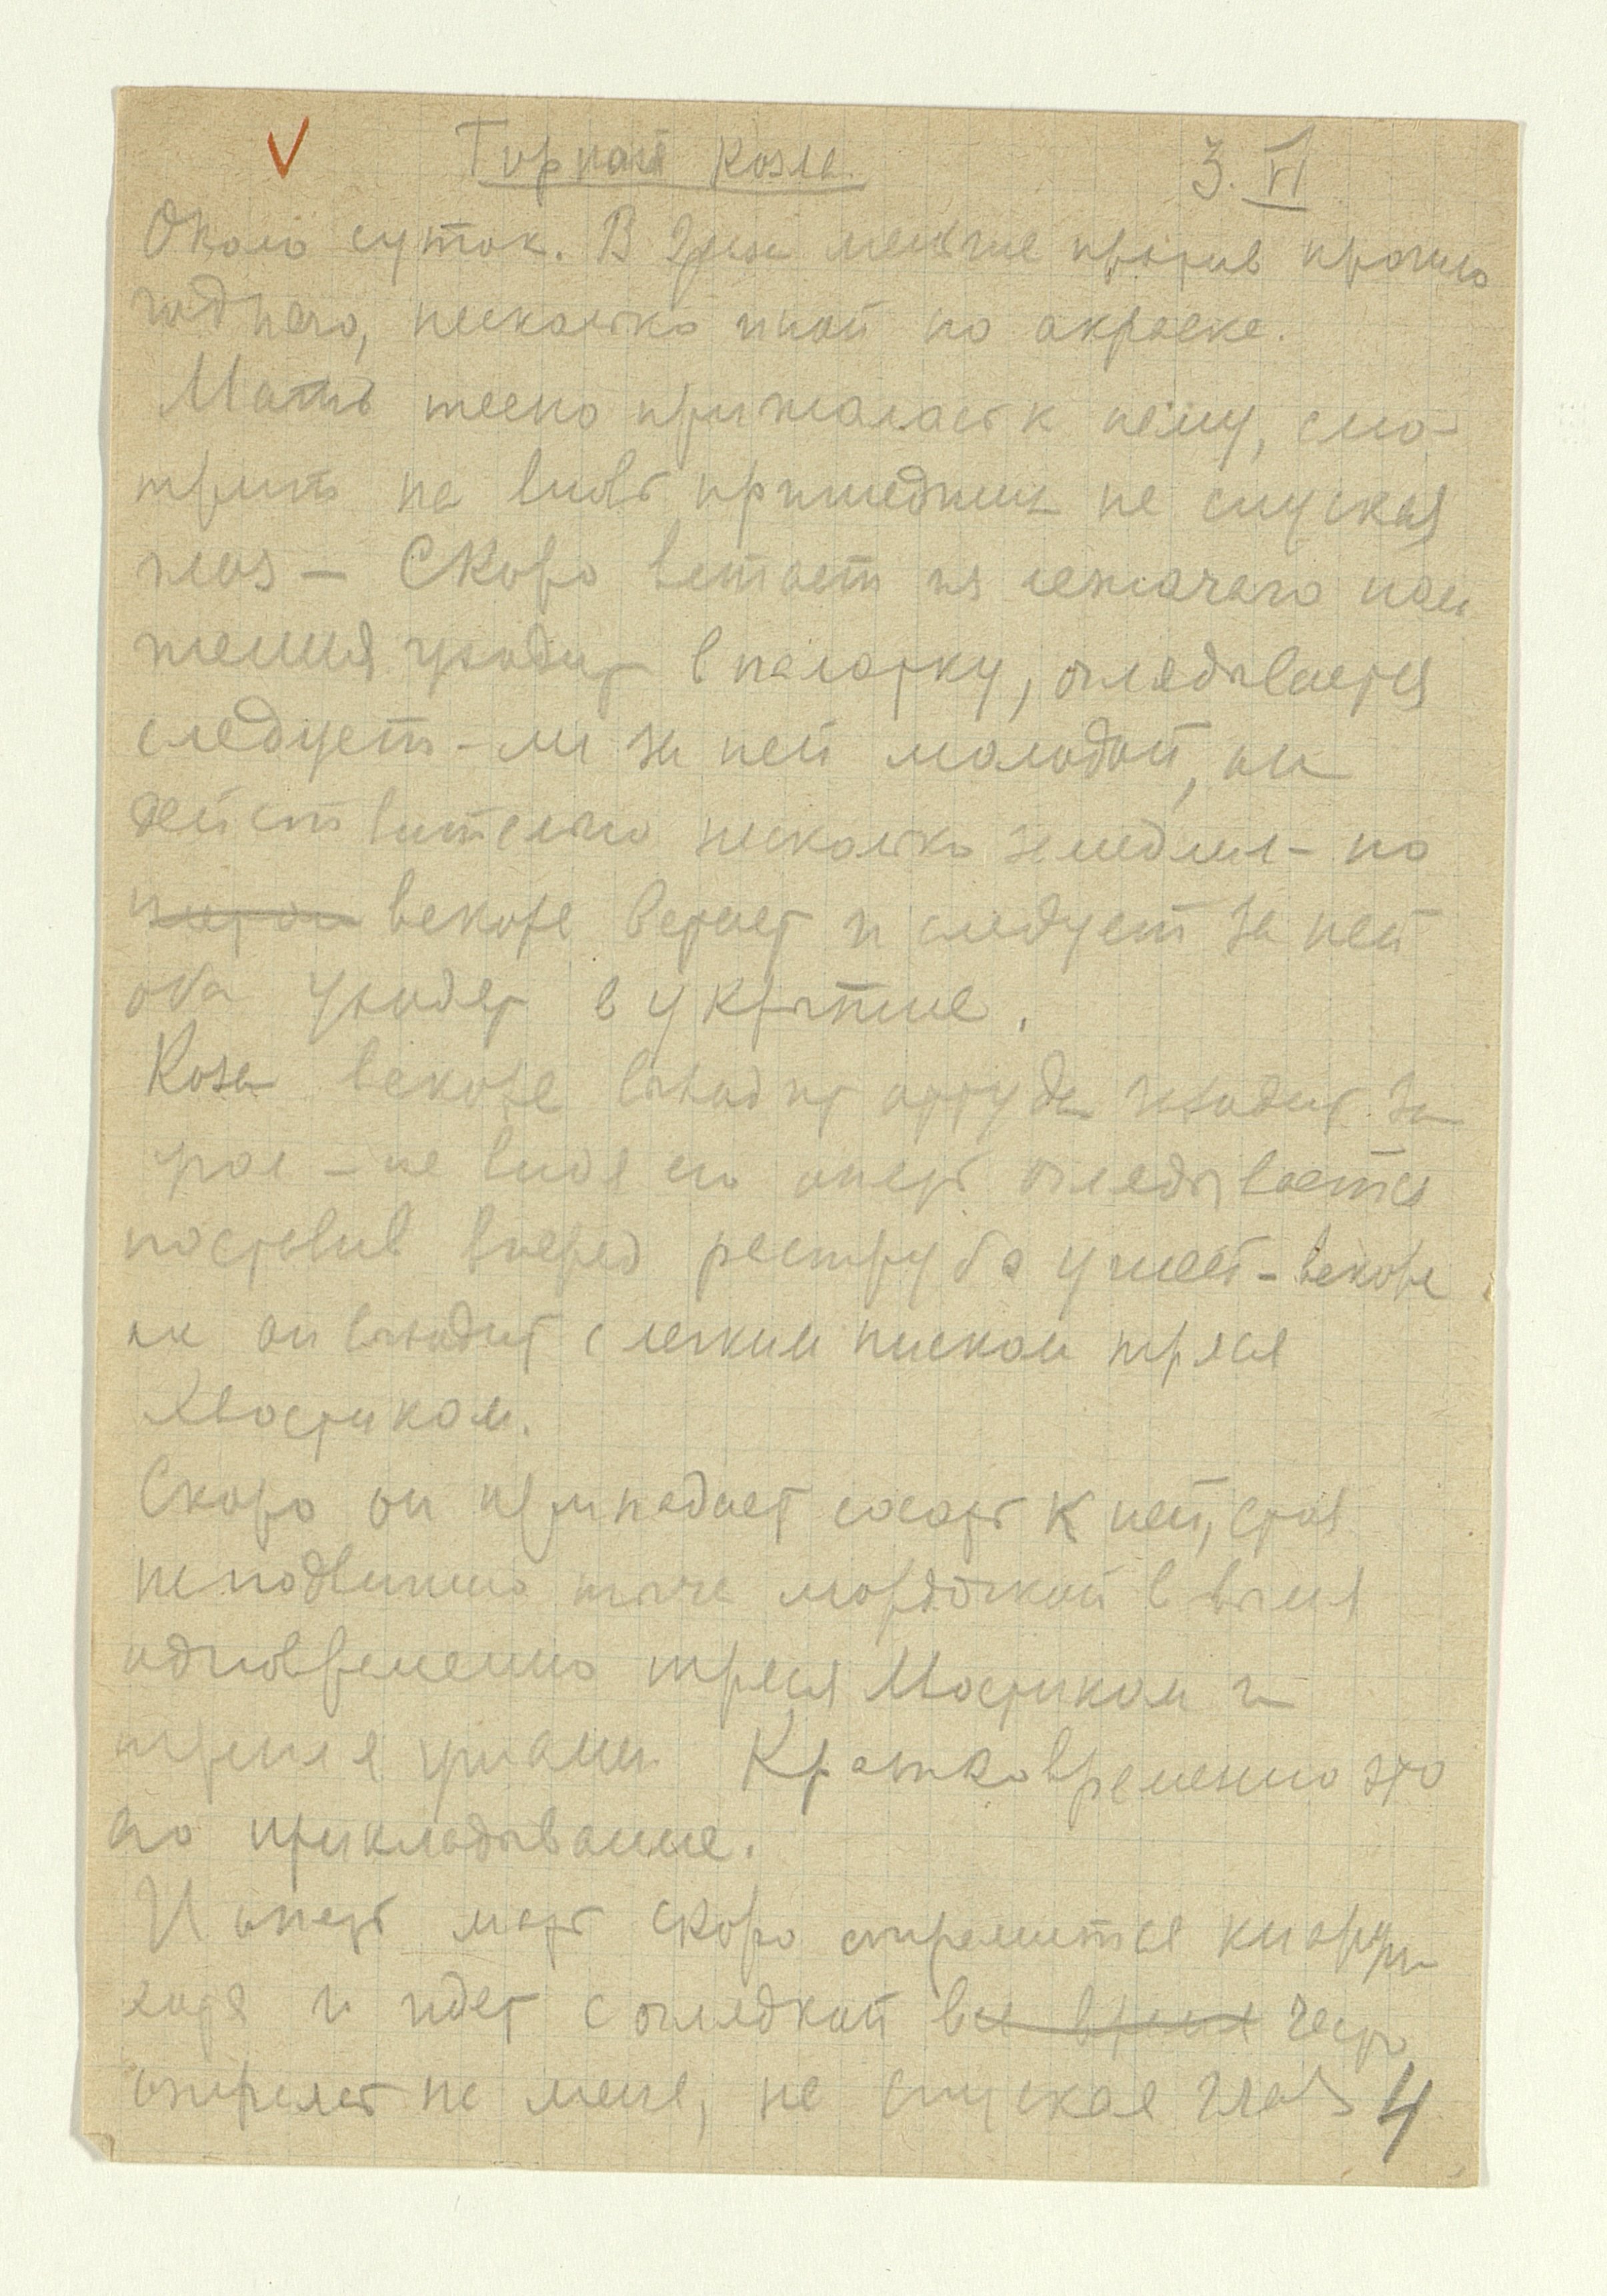 Горная коза. 3.VI
Около суток. В меньше против прошло
годнего, несколько иной по окраске.
Мать тесно прижалась к нему, смо-
трит на вновь пришедших не спуская
глаз – Скоро встает из лежачего поло
жения уходит в палатку, оглядывается
следует-ли за ней молодой, он
действительно несколько замедлил – но
вскоре встает и следует за ней
оба уходят в укрытие.
Коза вскоре выходит оттуда за
– не видя его опять оглядывается
поставив вперед раструба ушей – вскоре
и он выходит с легким писком тряся
хвостиком.
Скоро он припадает сосать к ней, стоя
неподвижно тыча мордочкой в вымя
одновременно тряся хвостиком и
ушами Кратковременно это
его прикладывание.
И опять мать скоро стремится
и идет с оглядкой все время
на меня, не спуская глаз 4